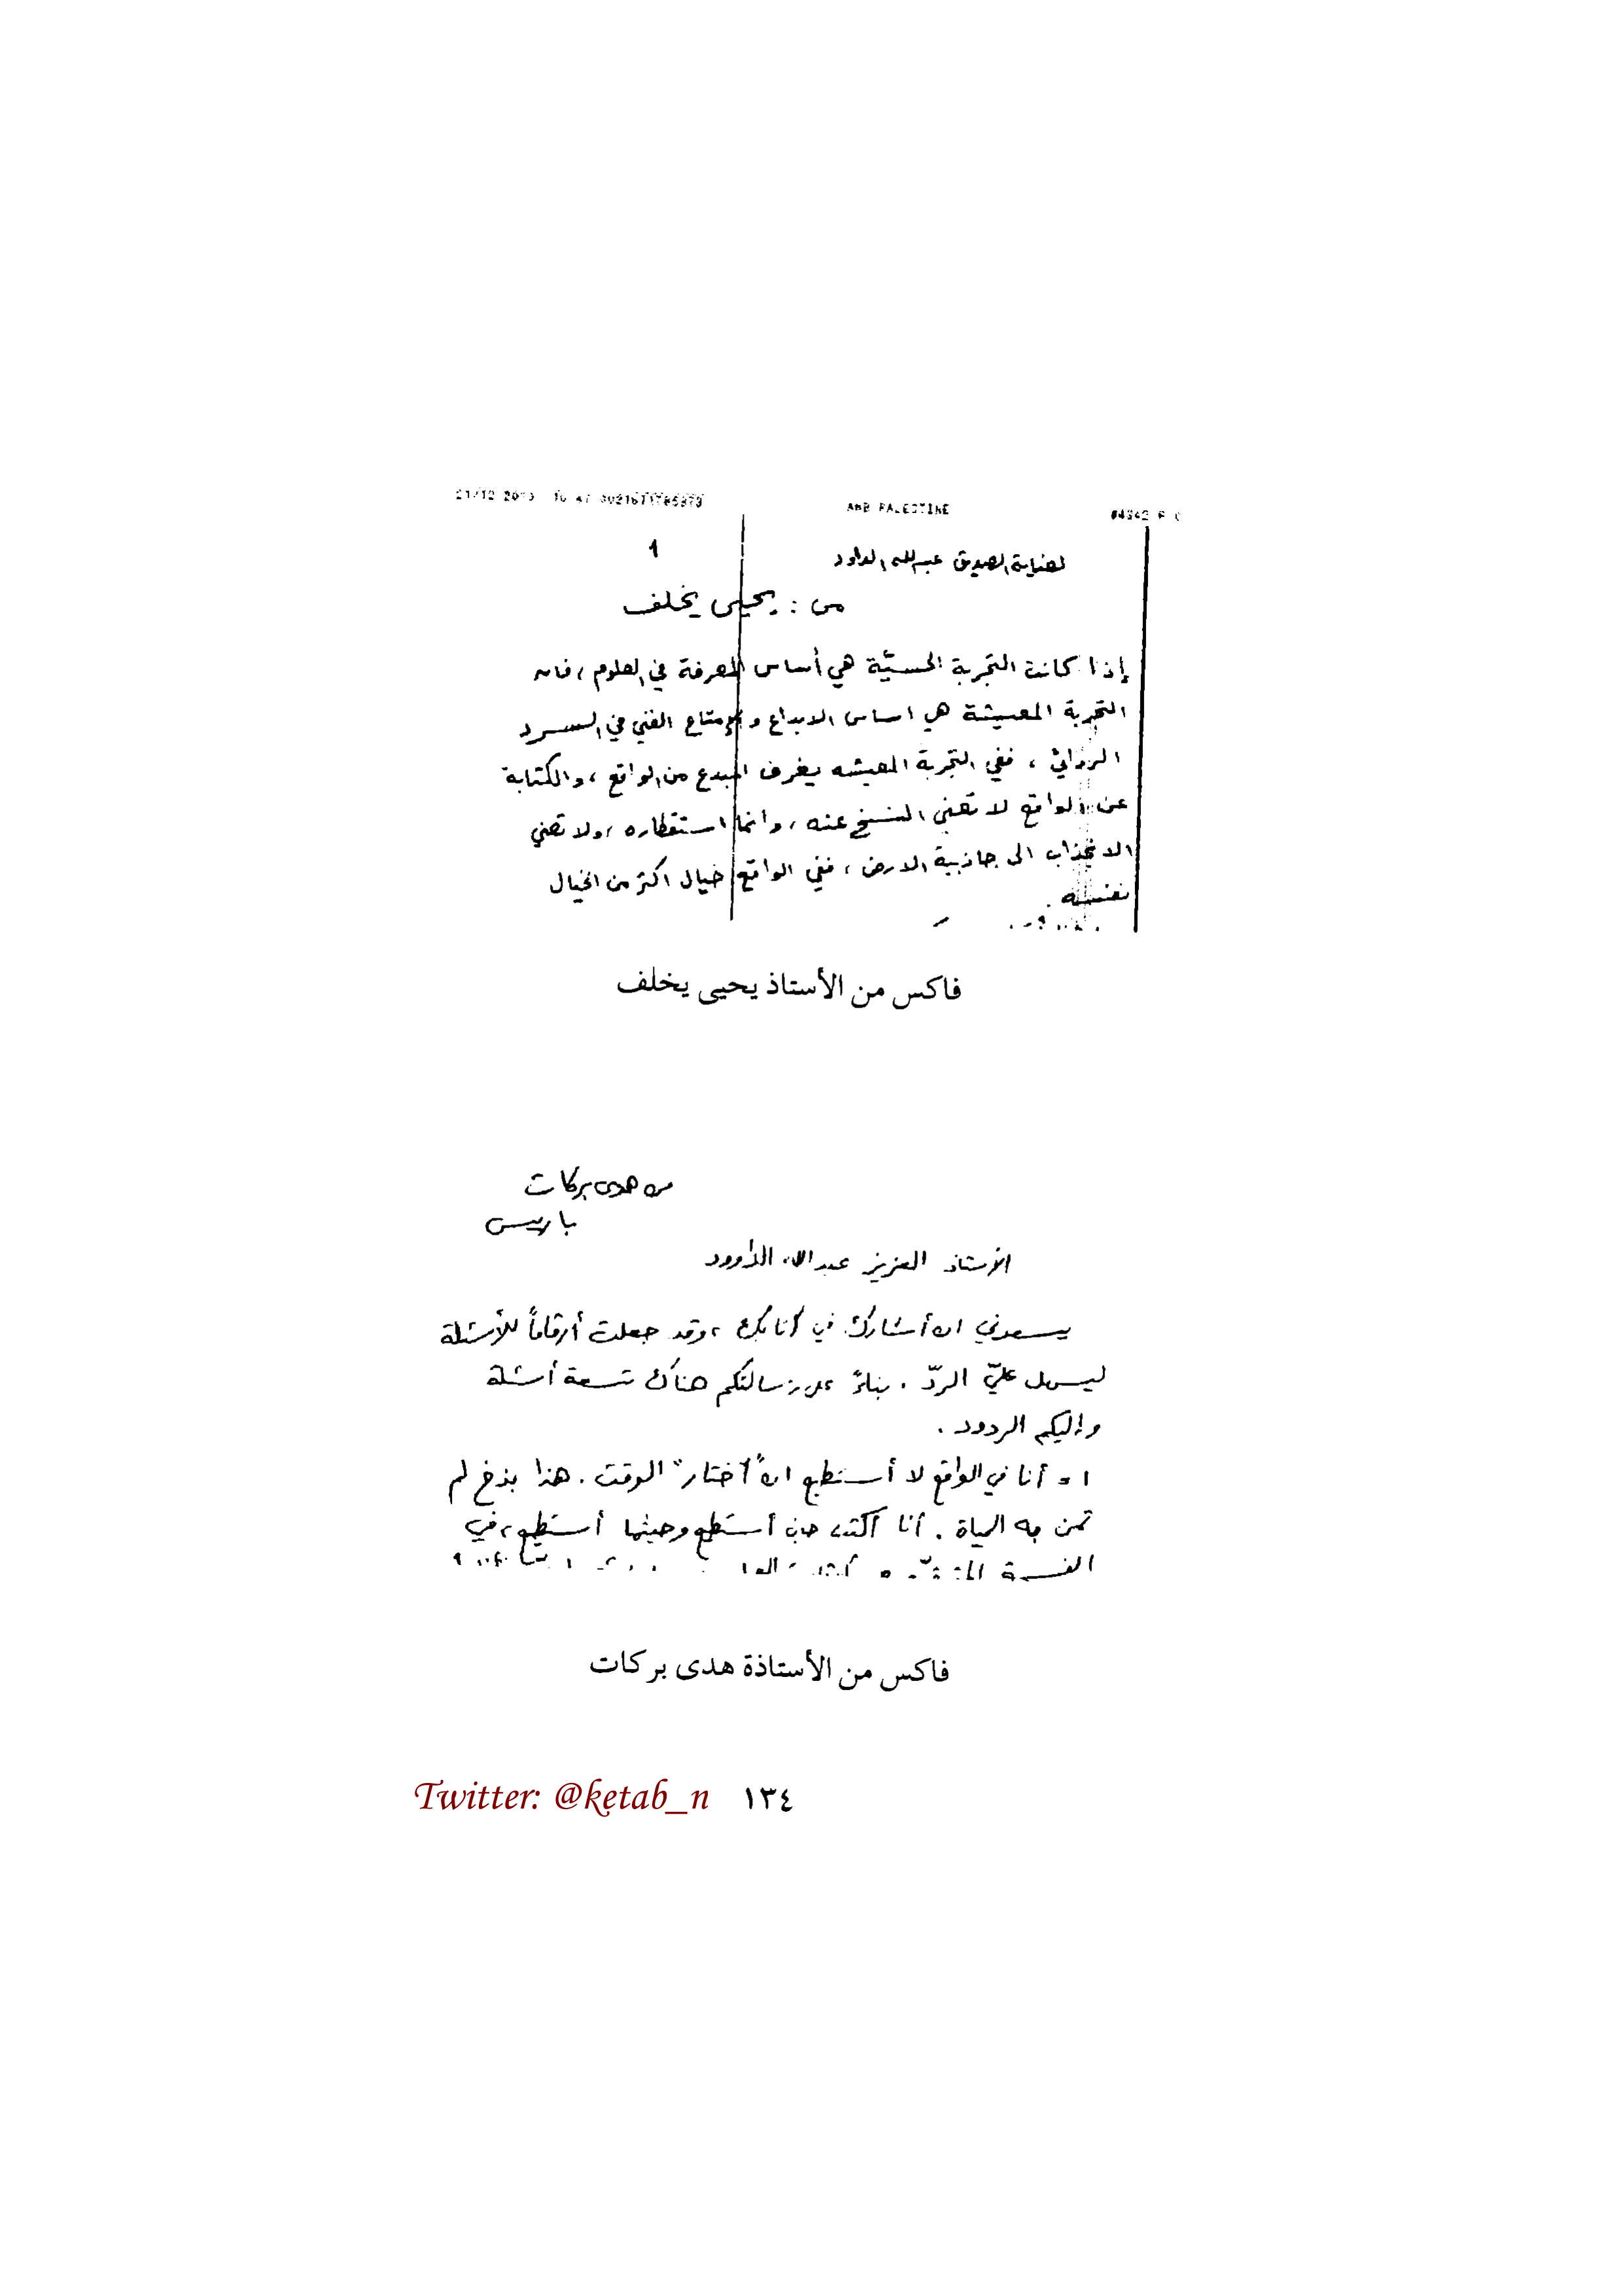 AMB PALESTINE
١
لعناية الصديق عبدالله الداود
من : يحيى يخلف
إذا كانت التجربة الحسيّة هي أساس المعرفة في العلوم ، فان
التجربة المعيشة هي اساس الابداع والإمتاع الفني في السرد
الروائي ، ففي التجربة المعيشه يغرف المبدع من الواقع ، والكتابة
عن الواقع لا تعني النسخ عنه ، وانما استقطاره ، ولا تعني
الانجذاب الى جاذبية الارض ، ففي الواقع خيال اكثر من الخيال
نفسه
فاكس من الأستاذ يحيى يخلف
من هدى بركات
باريس
الأستاذ العزيز عبدالله الداوود
يسعدني ان أشارك في كتابكم ، وقد جعلت أرقاماً للأسئلة
ليسهل عليّ الردّ . بناءً على رسالتكم هناك تسعة أسئلة
وإليكم الردود .
١ - أنا في الواقع لا أستطيع ان "أختار" الوقت . هذا بذخ لم
تمنّ به الحياة . أنا أكتب حين أستطيع وحيثما أستطيع ، في
فاكس من الأستاذة هدى بركات
Twitter: @ketab_n ١٣٤